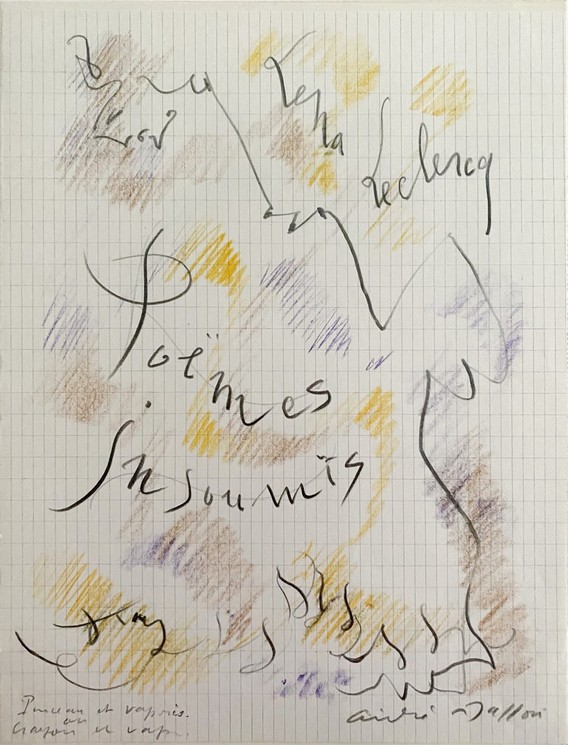 Léna
Leclercq
Poëmes
insoumis
Pinceau et vaporis.
ou
Crayon et vapo.
andré Masson